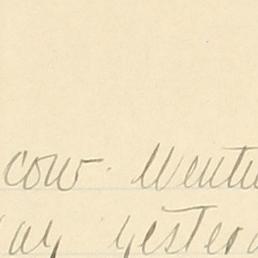 cow. Wentu
ay yesterd